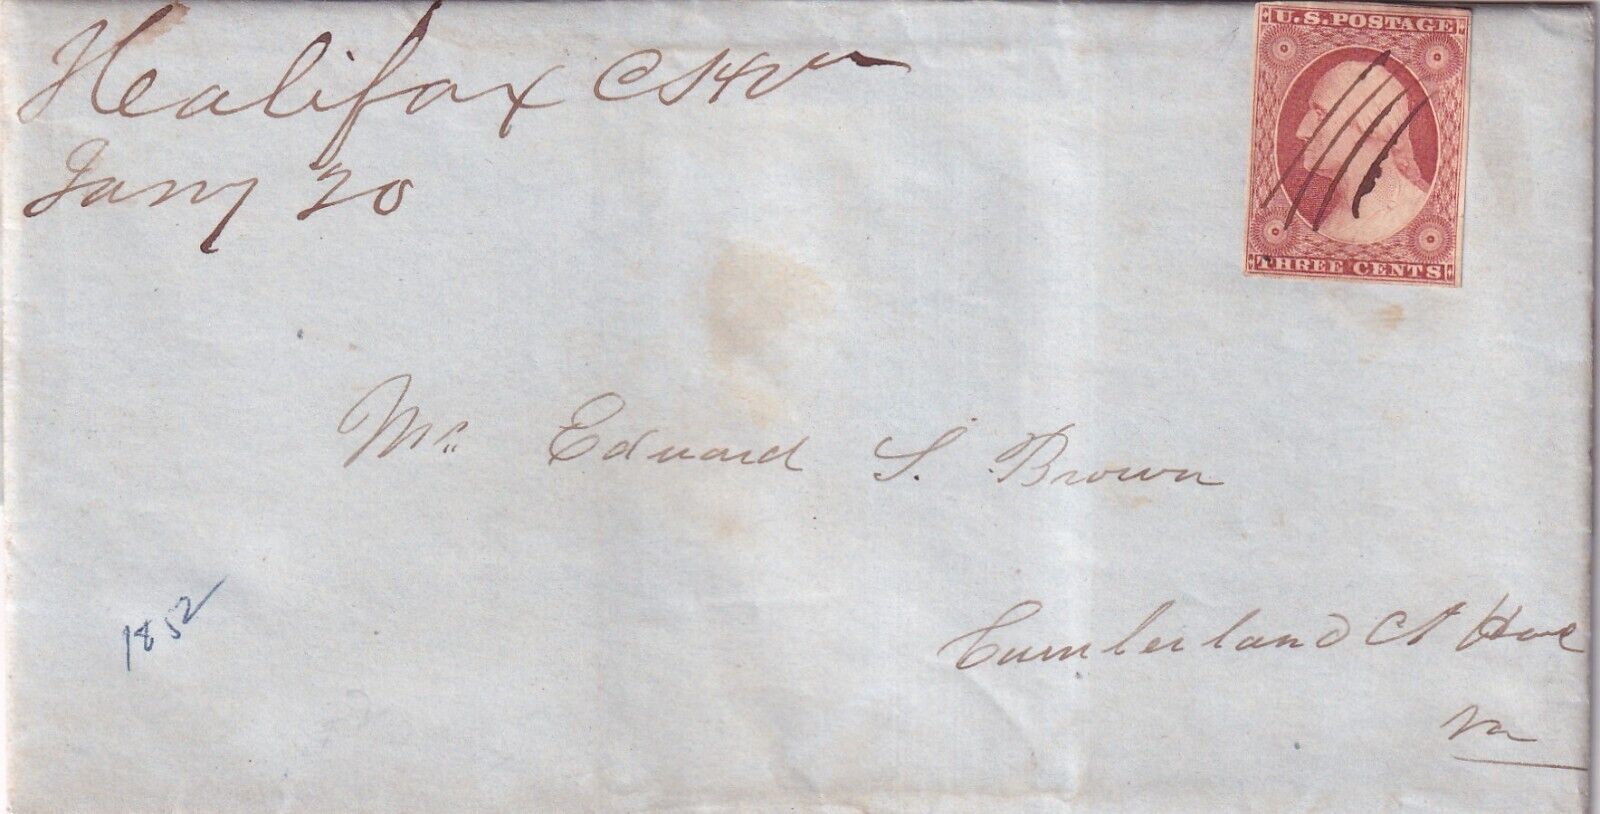 Halifax Ct H Va
Jany 20
U.S. POSTAGE
THREE CENTS
Mr. Edward S. Brown
1852
Cumberland Ct House
Va